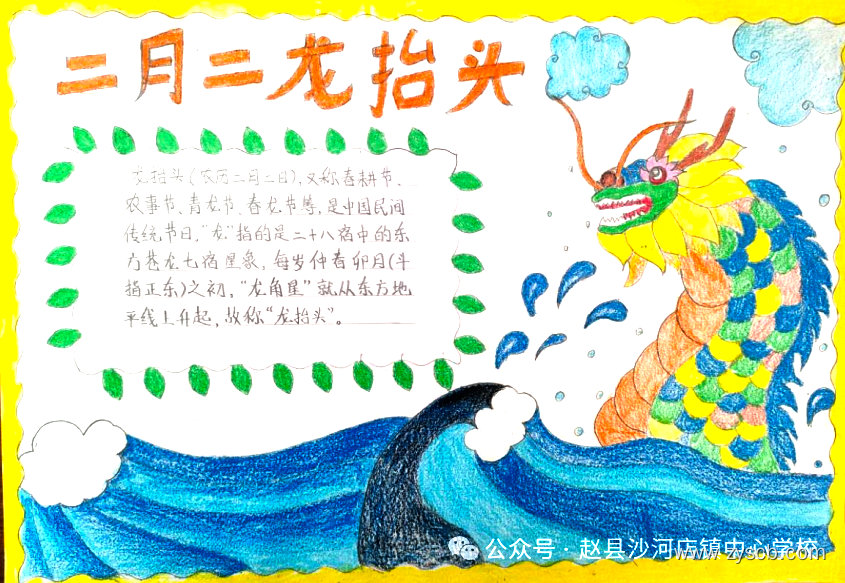 二月二龙抬头
龙抬头(农历二月二日),又称春耕节、
农事节、青龙节、春龙节等,是中国民间
传统节日。"龙"指的是二十八宿中的东
方苍龙七宿星象。每岁仲春卯月(斗
指正东)之初,"龙角星"就从东方地
平线上升起,故称"龙抬头"。
公众号·赵县沙河店镇中心学校